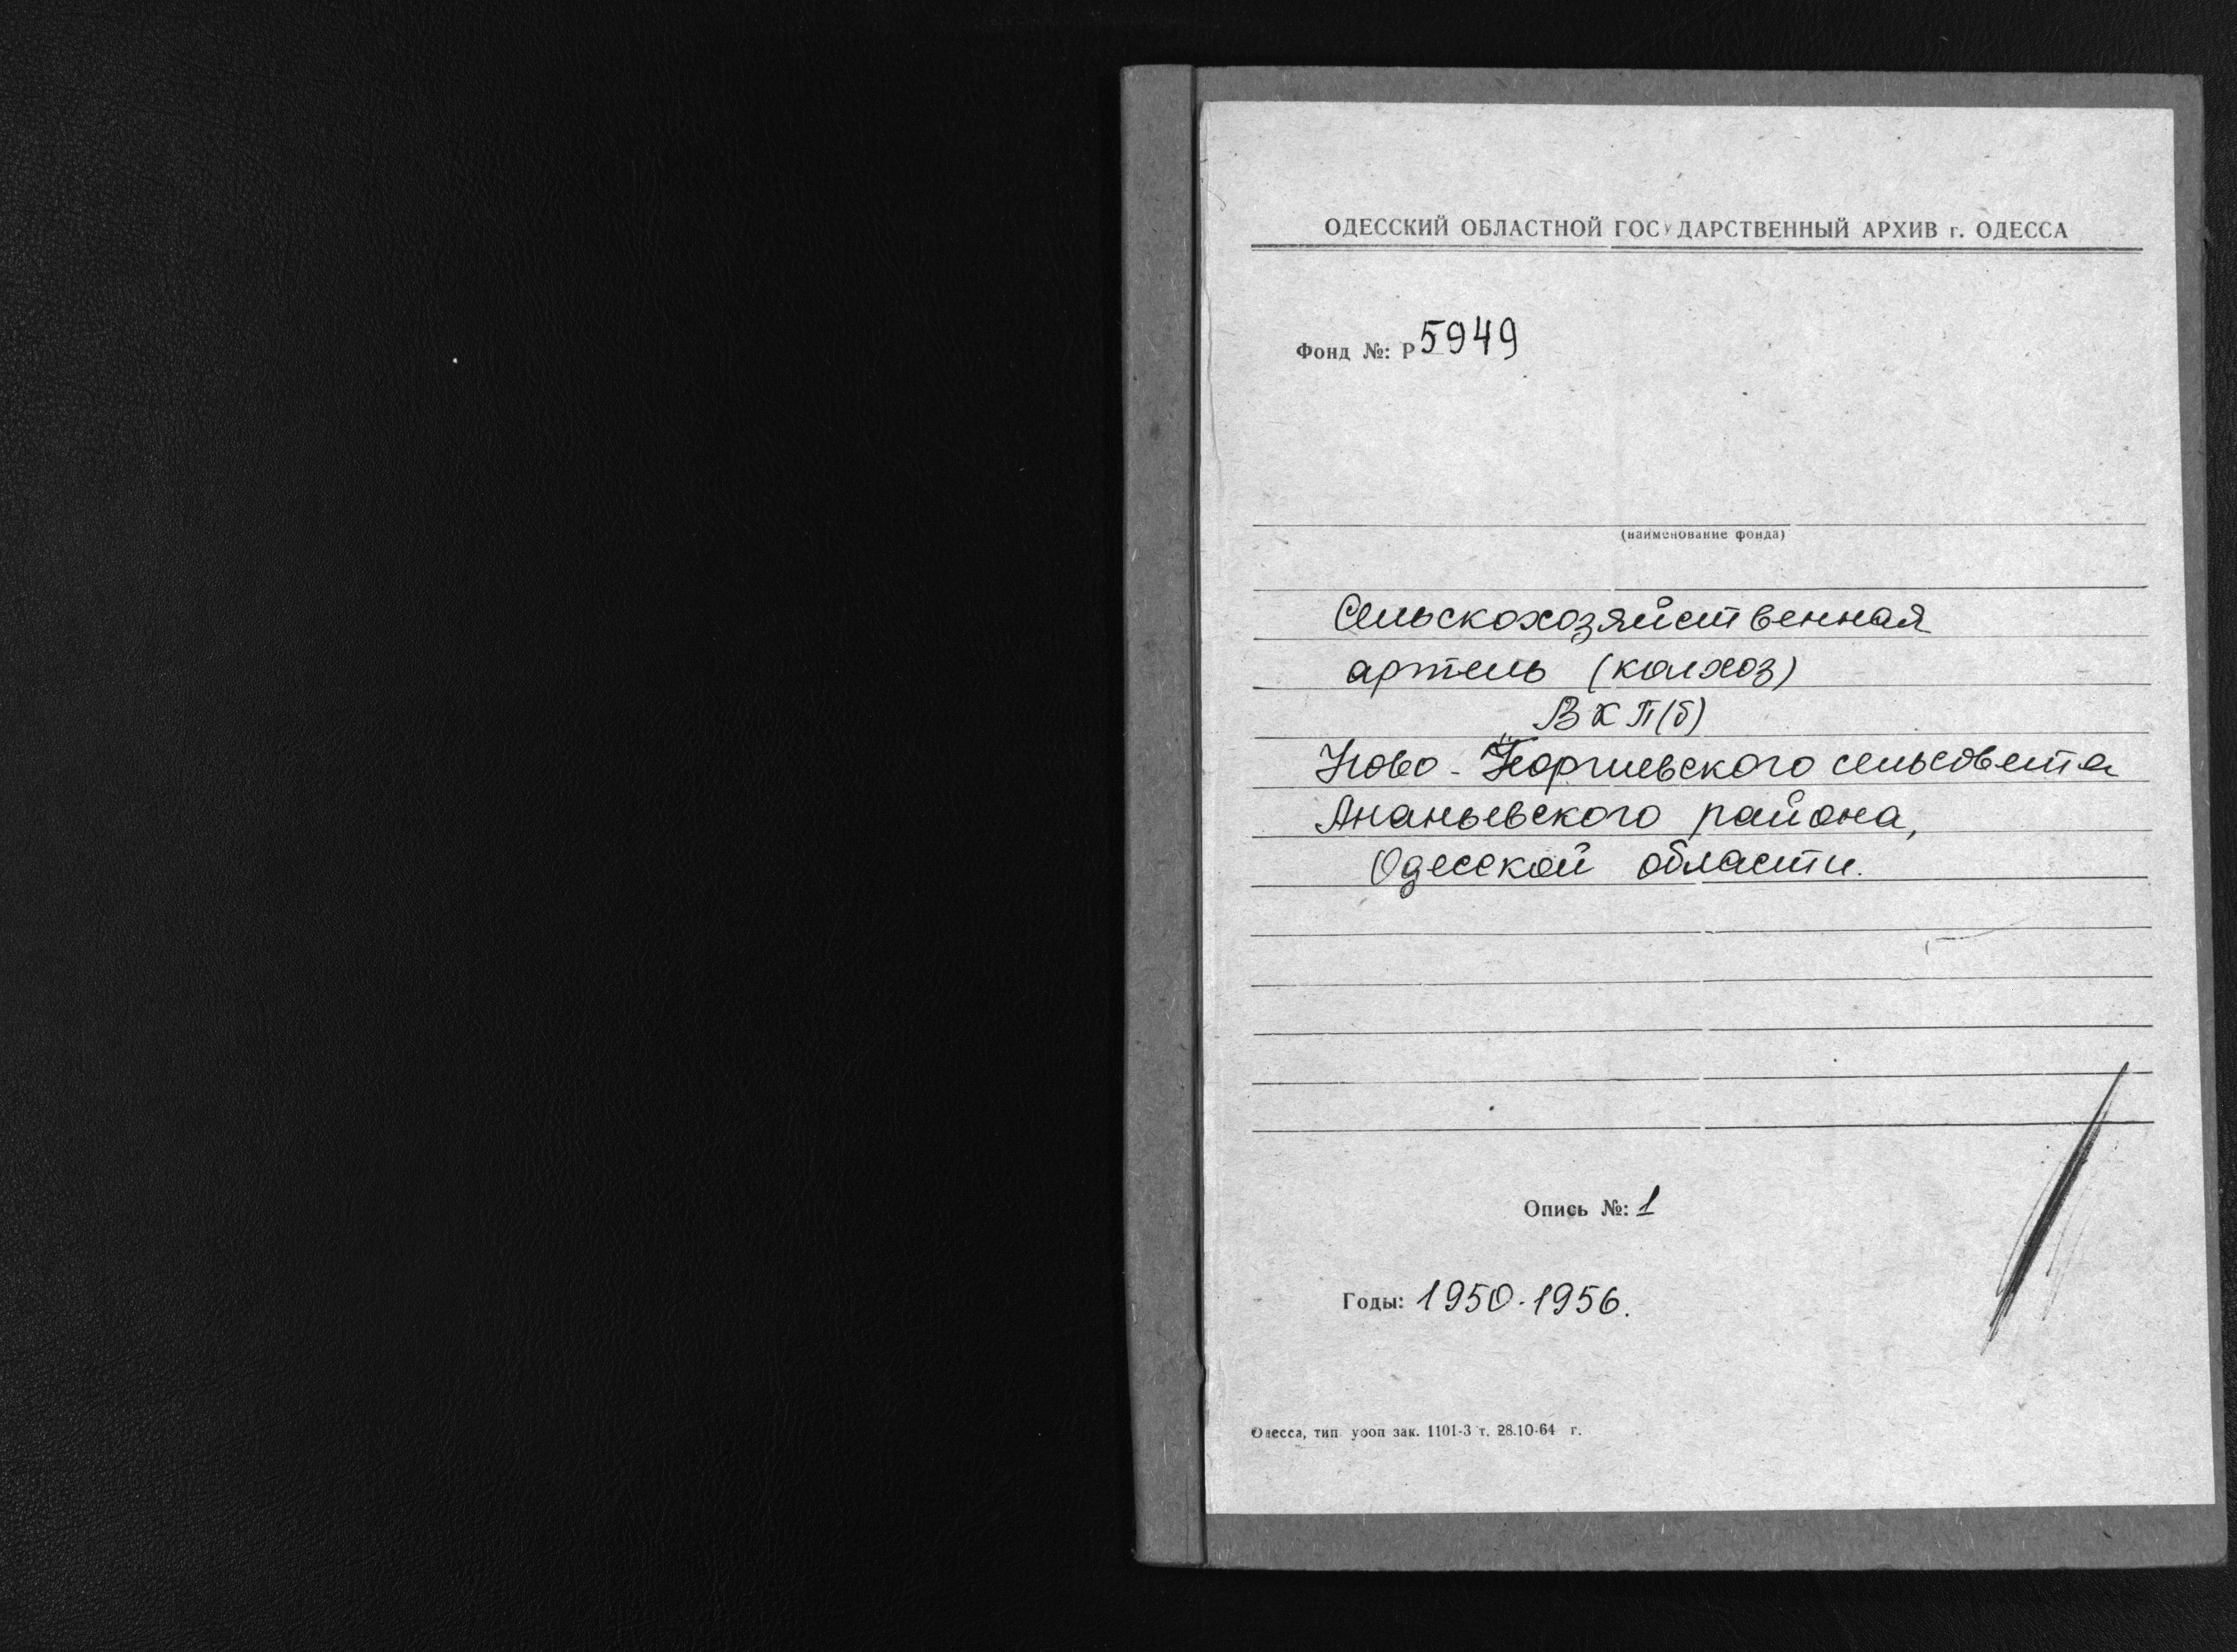 ОДЕССКИЙ ОБЛАСТНОЙ ГОСУДАРСТВЕННЫЙ АРХИВ г. ОДЕССА
Фонд №: Р 5949
(наименование фонда)
Сельскохозяйственная
артель (колхоз)
ВКП(б)
Ново-Георгиевского сельсовета
Ананьевского района,
Одесской области.
Опись №: 1
Годы: 1950-1956.
Одесса, тип. уооп зак. 1101-3 т. 28.10-64 г.